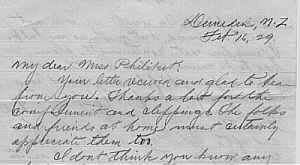 Dunedin, N.Z
Feb 16, 29.
My dear Miss Philikst:
Your letter received and glad to hear
from you. Thanks a lot for the
compliment and clippings. The folks
and friends at home must certainly
appreciate them too.
I dont think you know any